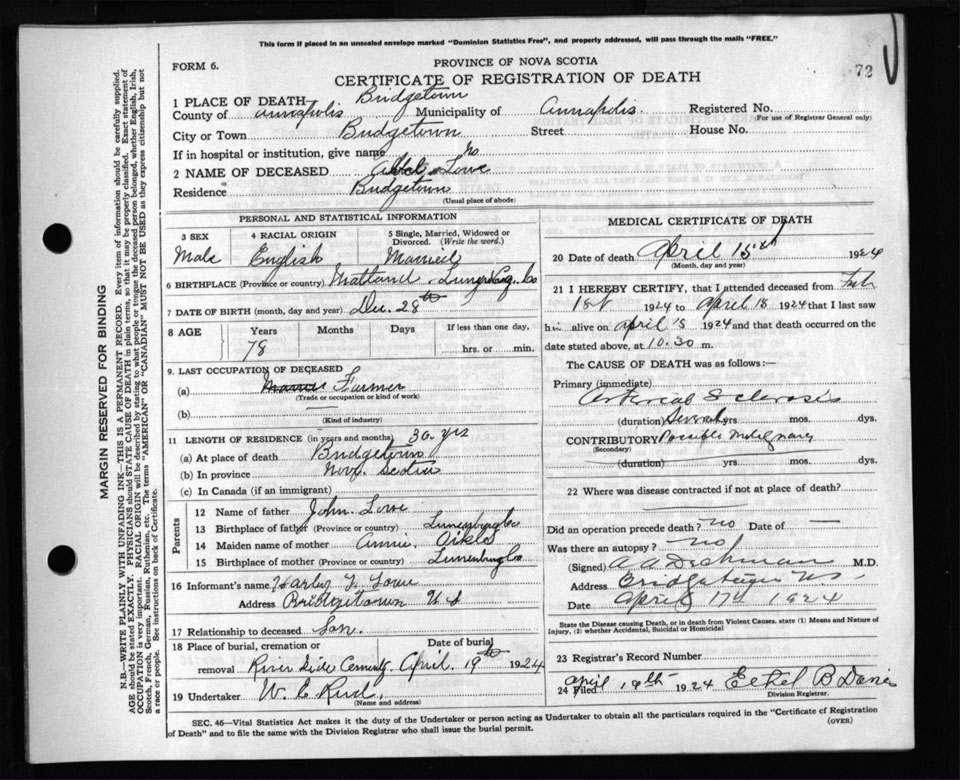 This form if placed in an unsealed envelope marked "Dominion Statistics Free", and properly addressed, will pass through the mails "FREE."
FORM 6.
PROVINCE OF NOVA SCOTIA
72
CERTIFICATE OF REGISTRATION OF DEATH
1 PLACE OF DEATH Bridgetown
County of Annapolis Municipality of Annapolis. Registered No.
For use of Registrar General only)
City or Town Bridgetown Street House No.
If in hospital or institution, give name No
2 NAME OF DECEASED Lowe
Residence Bridgetown
(Usual place of abode)
PERSONAL AND STATISTICAL INFORMATION
3 SEX
Male
4 RACIAL ORIGIN
English
5 Single, Married, Widowed or Divorced. (Write the word.)
Married
6 BIRTHPLACE (Province or country) Maitland Co
7 DATE OF BIRTH (month, day and year) Dec. 28th
8 AGE Years Months Days If less than one day,
78 hrs. or min.
9. LAST OCCUPATION OF DECEASED
(a) Farmer
(Trade or occupation or kind of work)
(b) —
(Kind of industry)
11 LENGTH OF RESIDENCE (in years and months) 30 yrs
(a) At place of death Bridgetown
(b) In province Nova Scotia
(c) In Canada (if an immigrant)
Parents
12 Name of father John Lowe
13 Birthplace of father (Province or country) Lunenburg Co
14 Maiden name of mother Annie
15 Birthplace of mother (Province or country) Lunenburg Co
16 Informant's name Harley Lowe
Address Bridgetown N S
17 Relationship to deceased Son.
18 Place of burial, cremation or removal River Side Cemetery
Date of burial
April 19th 1924
19 Undertaker W. E.
(Name and address)
MEDICAL CERTIFICATE OF DEATH
20 Date of death April 15th 1924
(Month, day and year)
21 I HEREBY CERTIFY, that I attended deceased from Feb
1st 1924 to April 15 1924 that I last saw
him alive on April 15 1924 and that death occurred on the
date stated above, at 10.30 m.
The CAUSE OF DEATH was as follows:—
Primary (immediate)
Arterial Sclerosis
(duration) Several yrs mos. dys.
CONTRIBUTORY Possible Malignancy
(Secondary)
(duration) yrs mos. dys.
22 Where was disease contracted if not at place of death?
Did an operation precede death? no Date of —
Was there an autopsy? no
(Signed) A A Dechman M.D.
Address Bridgetown NS
Date April 17th 1924
State the Disease causing Death, or in death from Violent Causes, state (1) Means and Nature of Injury, (2) whether Accidental, Suicidal or Homicidal
23 Registrar's Record Number
24 Filed April 19th 1924 Ethel B
Division Registrar.
SEC. 46—Vital Statistics Act makes it the duty of the Undertaker or person acting as Undertaker to obtain all the particulars required in the "Certificate of Registration of Death" and to file the same with the Division Registrar who shall issue the burial permit.
(OVER)
MARGIN RESERVED FOR BINDING
N.B.—WRITE PLAINLY WITH UNFADING INK—THIS IS A PERMANENT RECORD. Every item of information should be carefully supplied.
AGE should be stated EXACTLY. PHYSICIANS should STATE CAUSE OF DEATH in plain terms, so that it may be properly classified. Exact statement of
OCCUPATION is very important. RACIAL ORIGIN will be described by stating to what people or tongue the deceased person belonged, whether English, Irish,
Scotch, French, German, Russian, Ruthenian, etc. The terms "AMERICAN" OR "CANADIAN" MUST NOT BE USED as they express citizenship but not
a race or people. See instructions on back of Certificate.